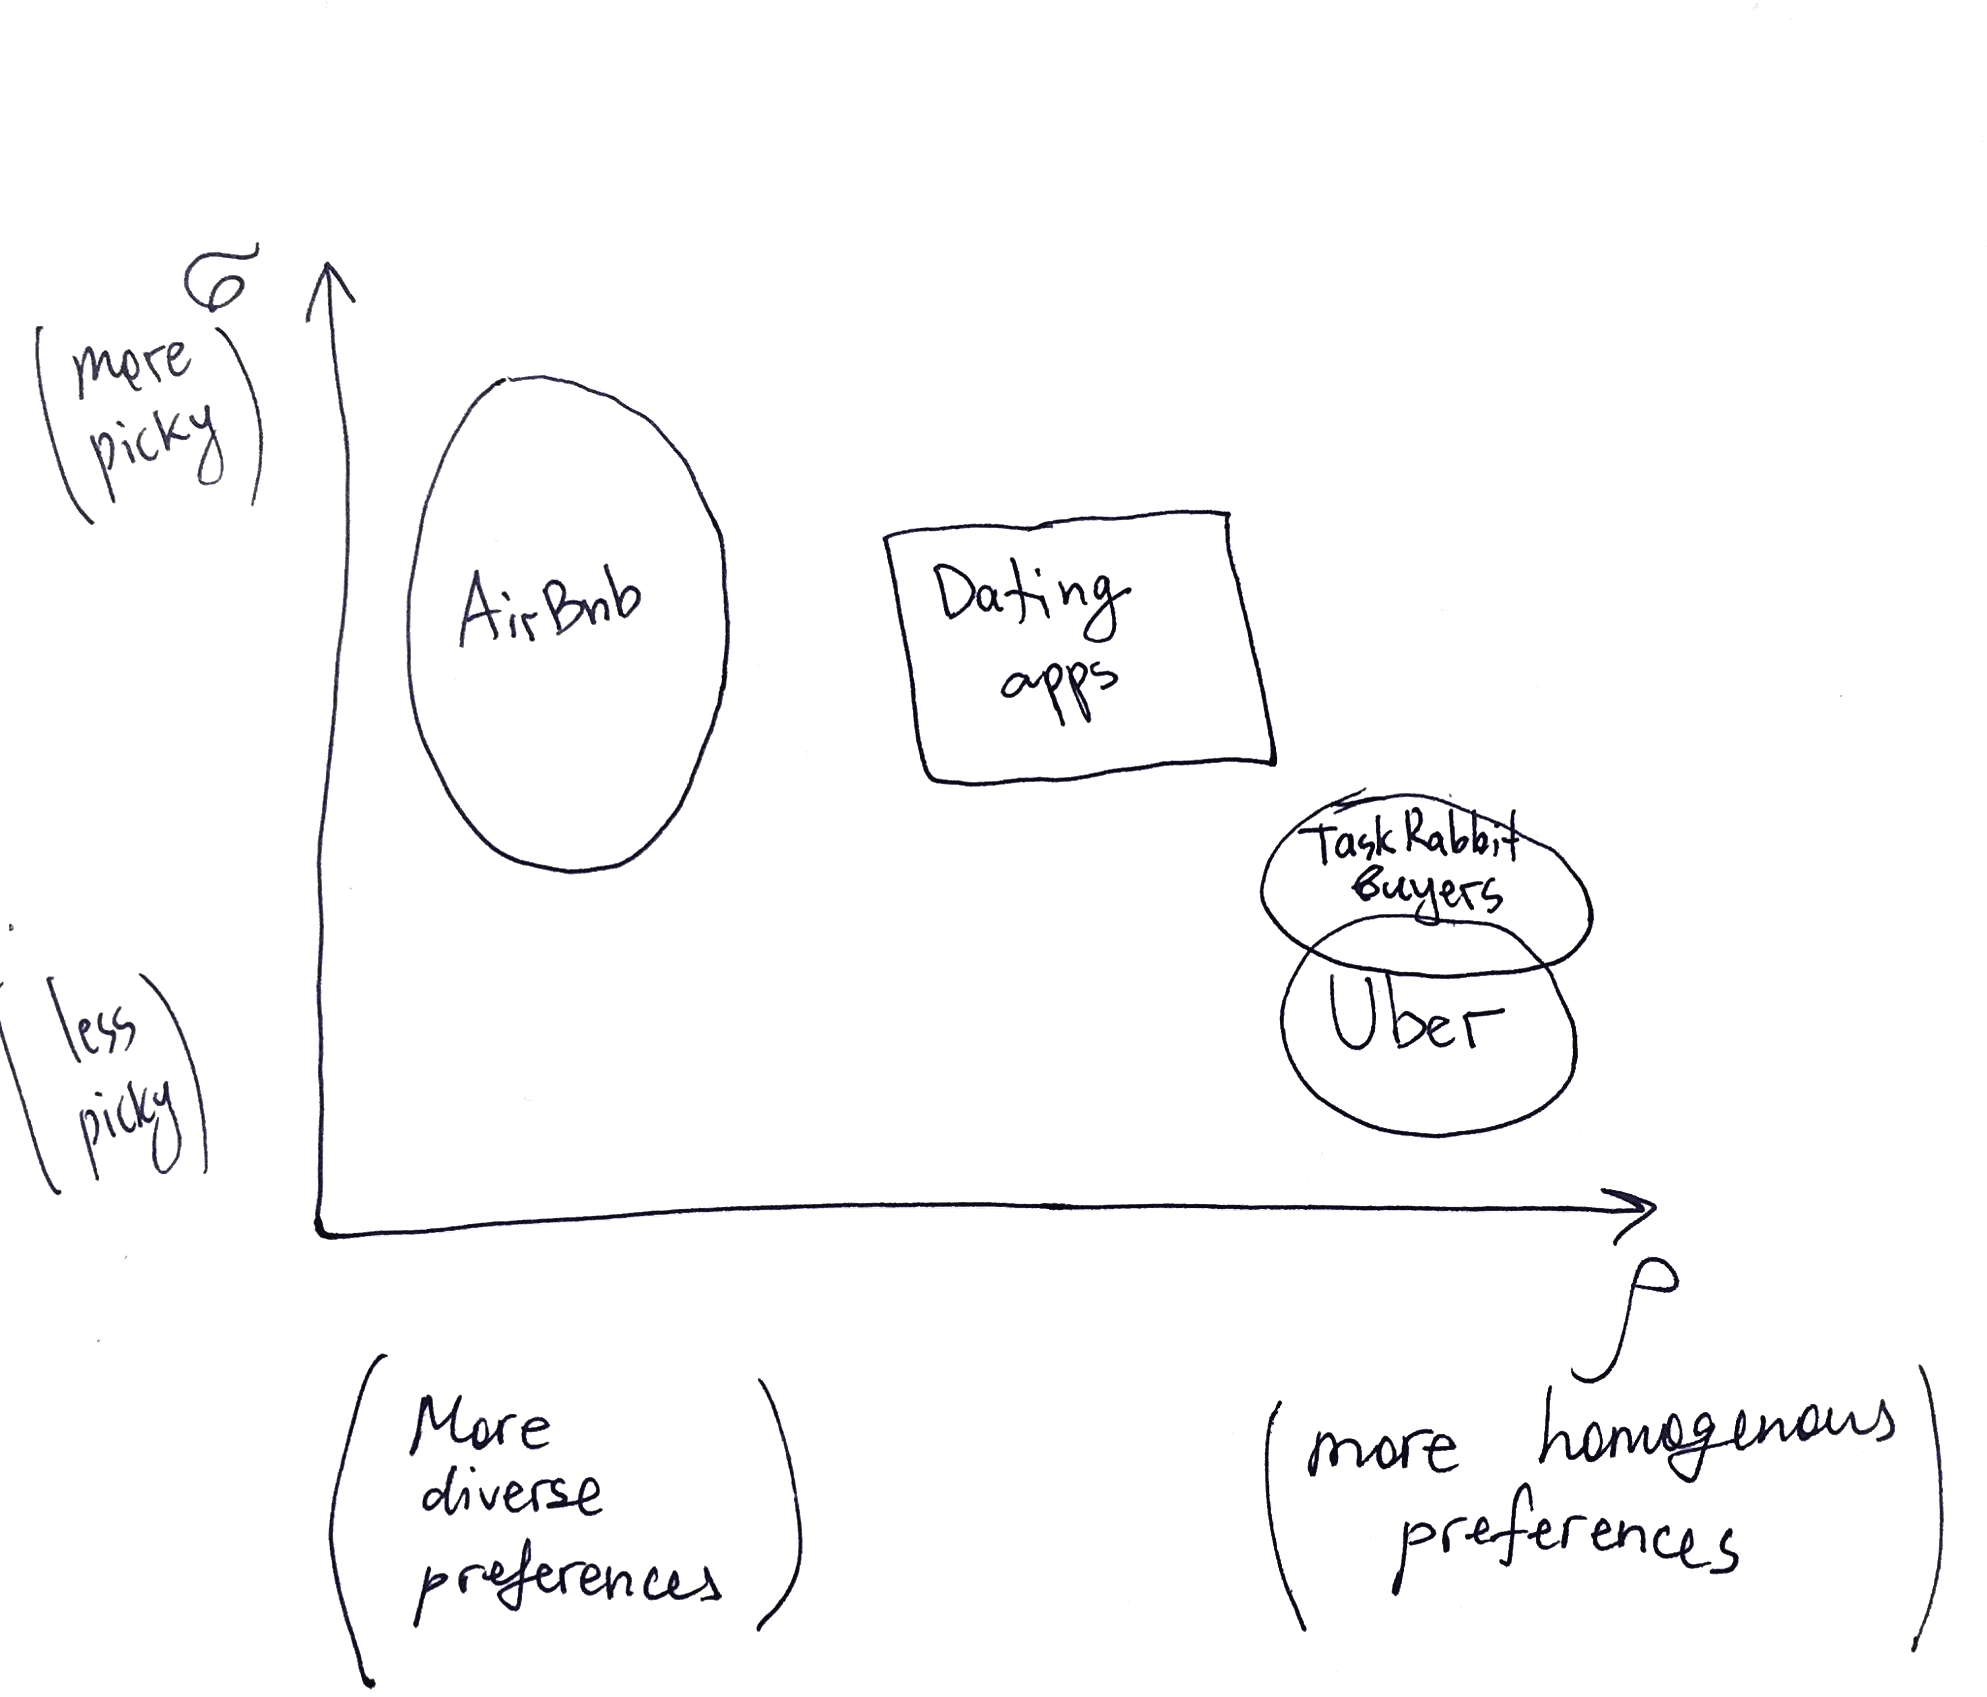 σ
(more
picky)
AirBnb
Dating
apps
TaskRabbit
Buyers
Uber
(less
picky)
ρ
(More
diverse
preferences)
(more homogenous
preferences)